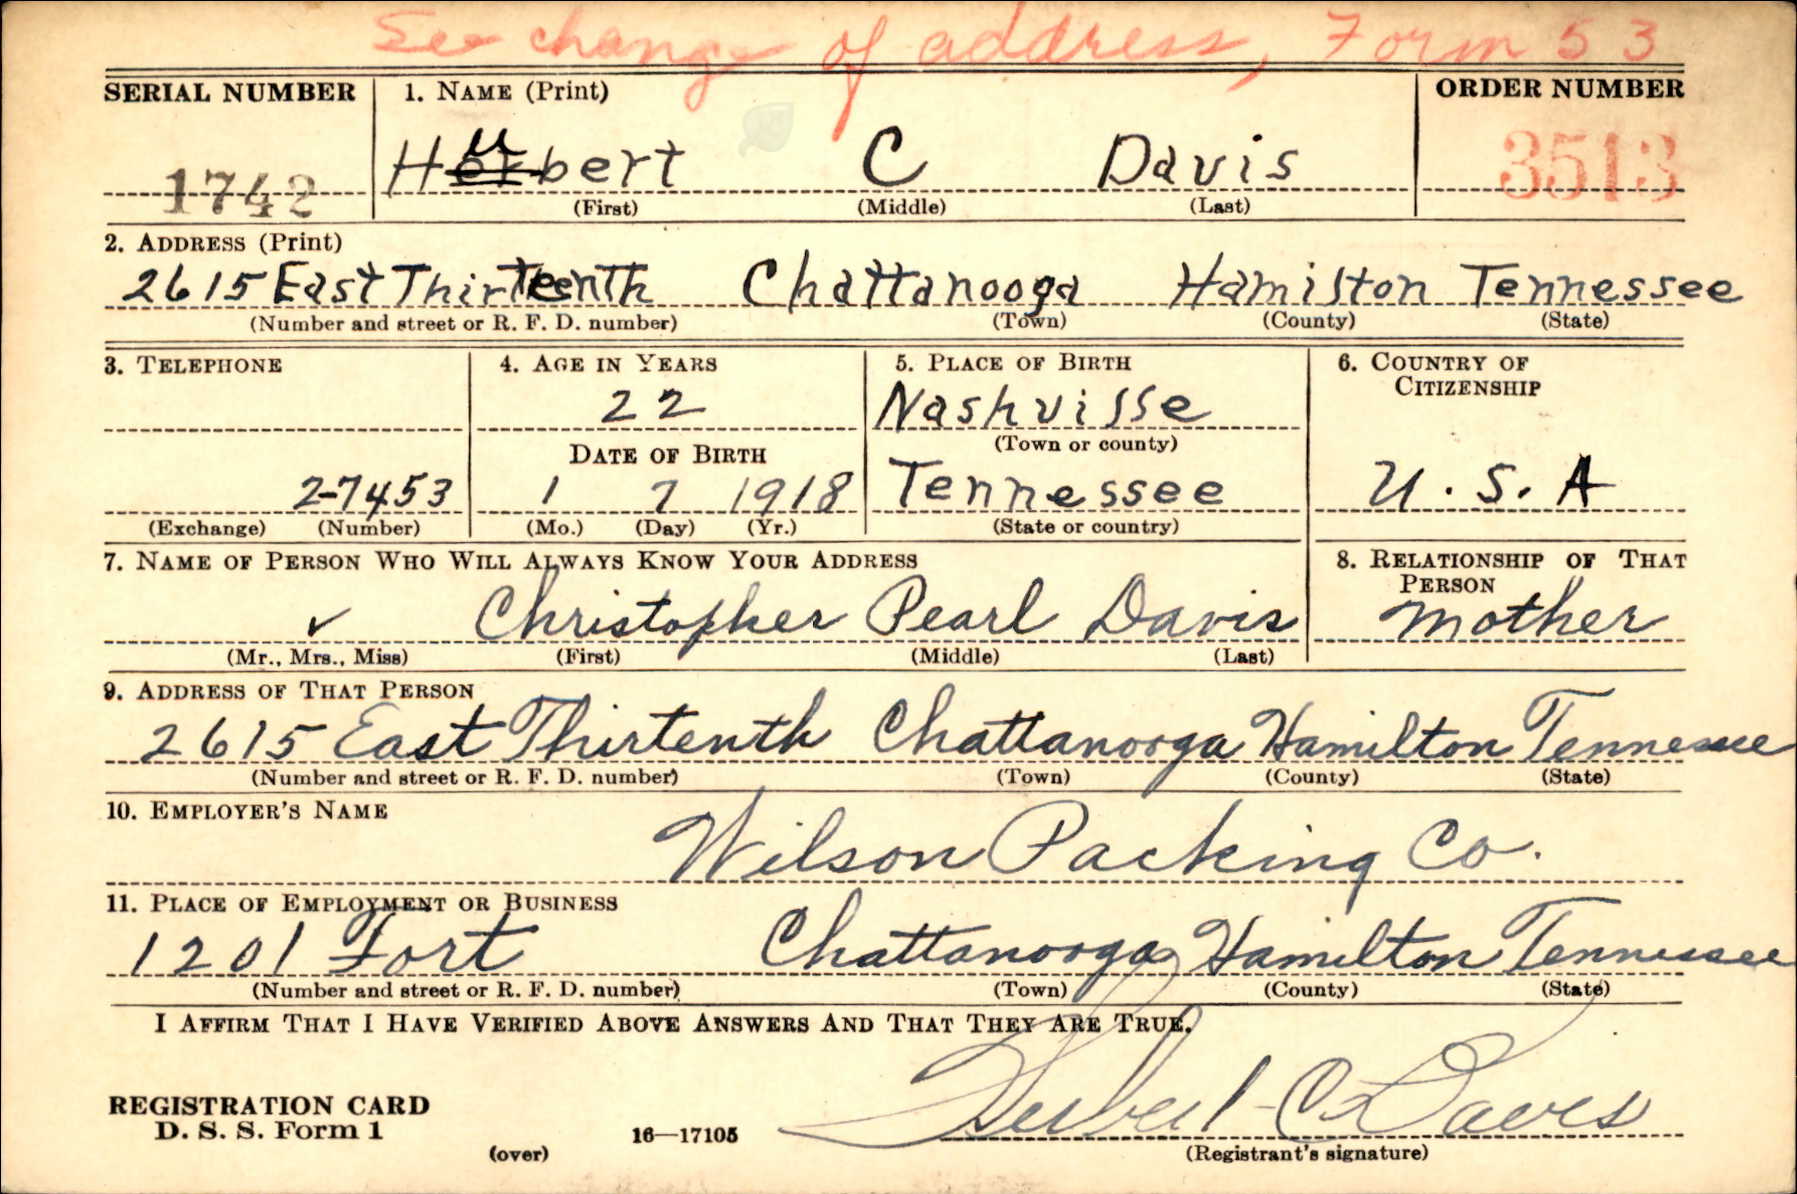 See change of address, Form 53
SERIAL NUMBER 1. NAME (Print) ORDER NUMBER
u
1742 Herbert C Davis 3513
(First) (Middle) (Last)
2. ADDRESS (Print)
2615 East Thirteenth Chattanooga Hamilton Tennessee
(Number and street or R. F. D. number) (Town) (County) (State)
3. TELEPHONE 4. AGE IN YEARS 5. PLACE OF BIRTH 6. COUNTRY OF CITIZENSHIP
22 Nashville
DATE OF BIRTH (Town or county)
2-7453 1 7 1918 Tennessee U.S.A
(Exchange) (Number) (Mo.) (Day) (Yr.) (State or country)
7. NAME OF PERSON WHO WILL ALWAYS KNOW YOUR ADDRESS 8. RELATIONSHIP OF THAT PERSON
✓ Christopher Pearl Davis Mother
(Mr., Mrs., Miss) (First) (Middle) (Last)
9. ADDRESS OF THAT PERSON
2615 East Thirtenth Chattanooga Hamilton Tennessee
(Number and street or R. F. D. number) (Town) (County) (State)
10. EMPLOYER'S NAME
Wilson Packing Co.
11. PLACE OF EMPLOYMENT OR BUSINESS
1201 Fort Chattanooga Hamilton Tennessee
(Number and street or R. F. D. number) (Town) (County) (State)
I AFFIRM THAT I HAVE VERIFIED ABOVE ANSWERS AND THAT THEY ARE TRUE.
REGISTRATION CARD
D. S. S. Form 1 Hubert C Davis
(over) 16—17105 (Registrant's signature)